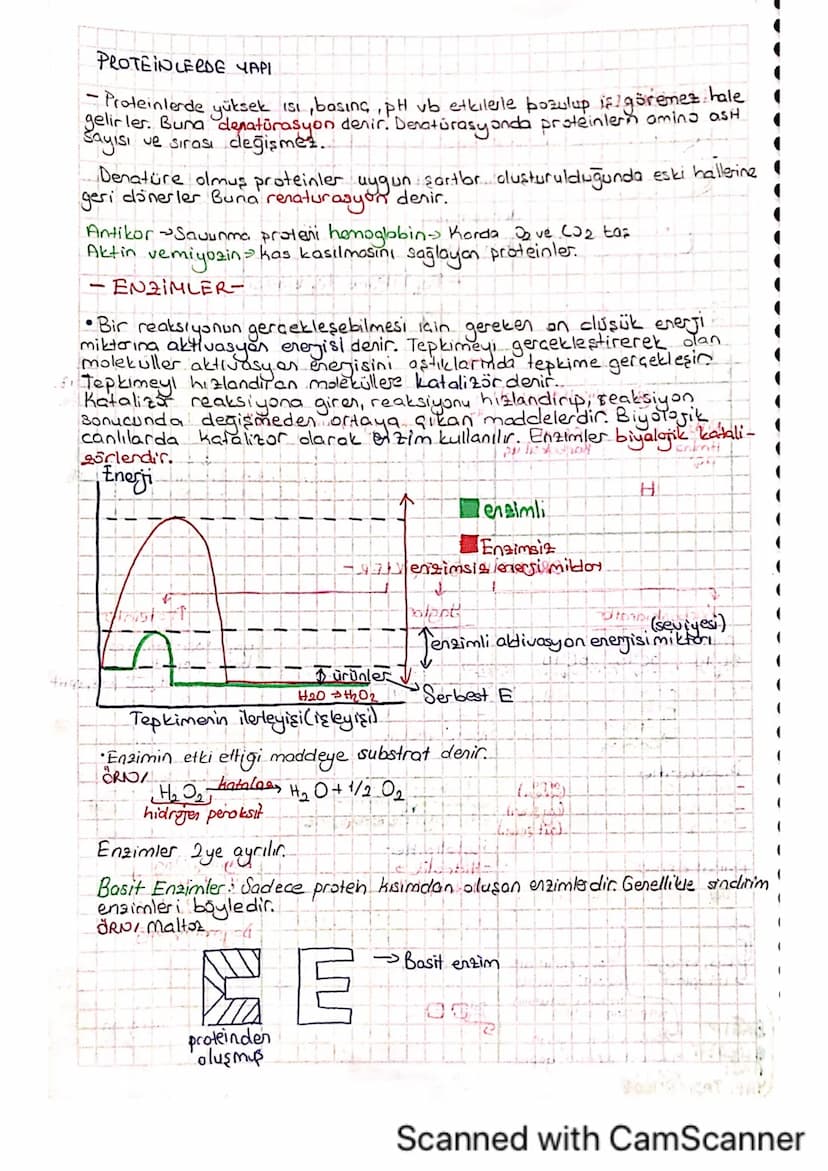 PROTEİNLERDE YAPI
- Proteinlerde yüksek ısı, basınç, pH vb etkilerle bozulup iş göremez hale
gelirler. Buna denatürasyon denir. Denatürasyonda proteinlern amino asit
sayısı ve sırası değişmez.
Denatüre olmuş proteinler uygun şartlar oluşturulduğunda eski hallerine
geri dönerler Buna renaturasyon denir.
Antikor → Savunma proteni hemoglobin → Kanda O2 ve CO2 taş
Aktin ve miyozin → kas kasılmasını sağlayan proteinler.
- ENZİMLER -
• Bir reaksiyonun gerçekleşebilmesi için gereken en düşük enerji
miktarına aktivasyon enerjisi denir. Tepkimeyi gerçekleştirerek olan
moleküller aktivasyon enerjisini aştıklarında tepkime gerçekleşir.
Tepkimeyi hızlandıran moleküllere katalizör denir.
Katalizör reaksiyona giren, reaksiyonu hızlandırıp, reaksiyon
sonucunda değişmeden ortaya çıkan maddelerdir. Biyolojik
canlılarda katalizor olarak enzim kullanılır. Enzimler biyolojik katali-
zörlerdir.
Enerji
H
enzimli
Enzimsiz
enzimsiz enerji miktarı
(seviyesi)
enzimli aktivasyon energisi miktarı
ürünler
H2O → H2O2
Serbest E
Tepkimenin ilerleyişi (işleyişi)
• Enzimin etki ettiği maddeye substrat denir.
ÖRN/
H2O2 katalaz → H2O + 1/2 O2
hidrojen peroksit
Enzimler 2ye ayrılır.
Basit Enzimler: Sadece protein kısımdan oluşan enzimledir. Genellikle sindirim
enzimleri böyledir.
ÖRN/ Maltoz
E → Basit enzim
proteinden
oluşmuş
Scanned with CamScanner